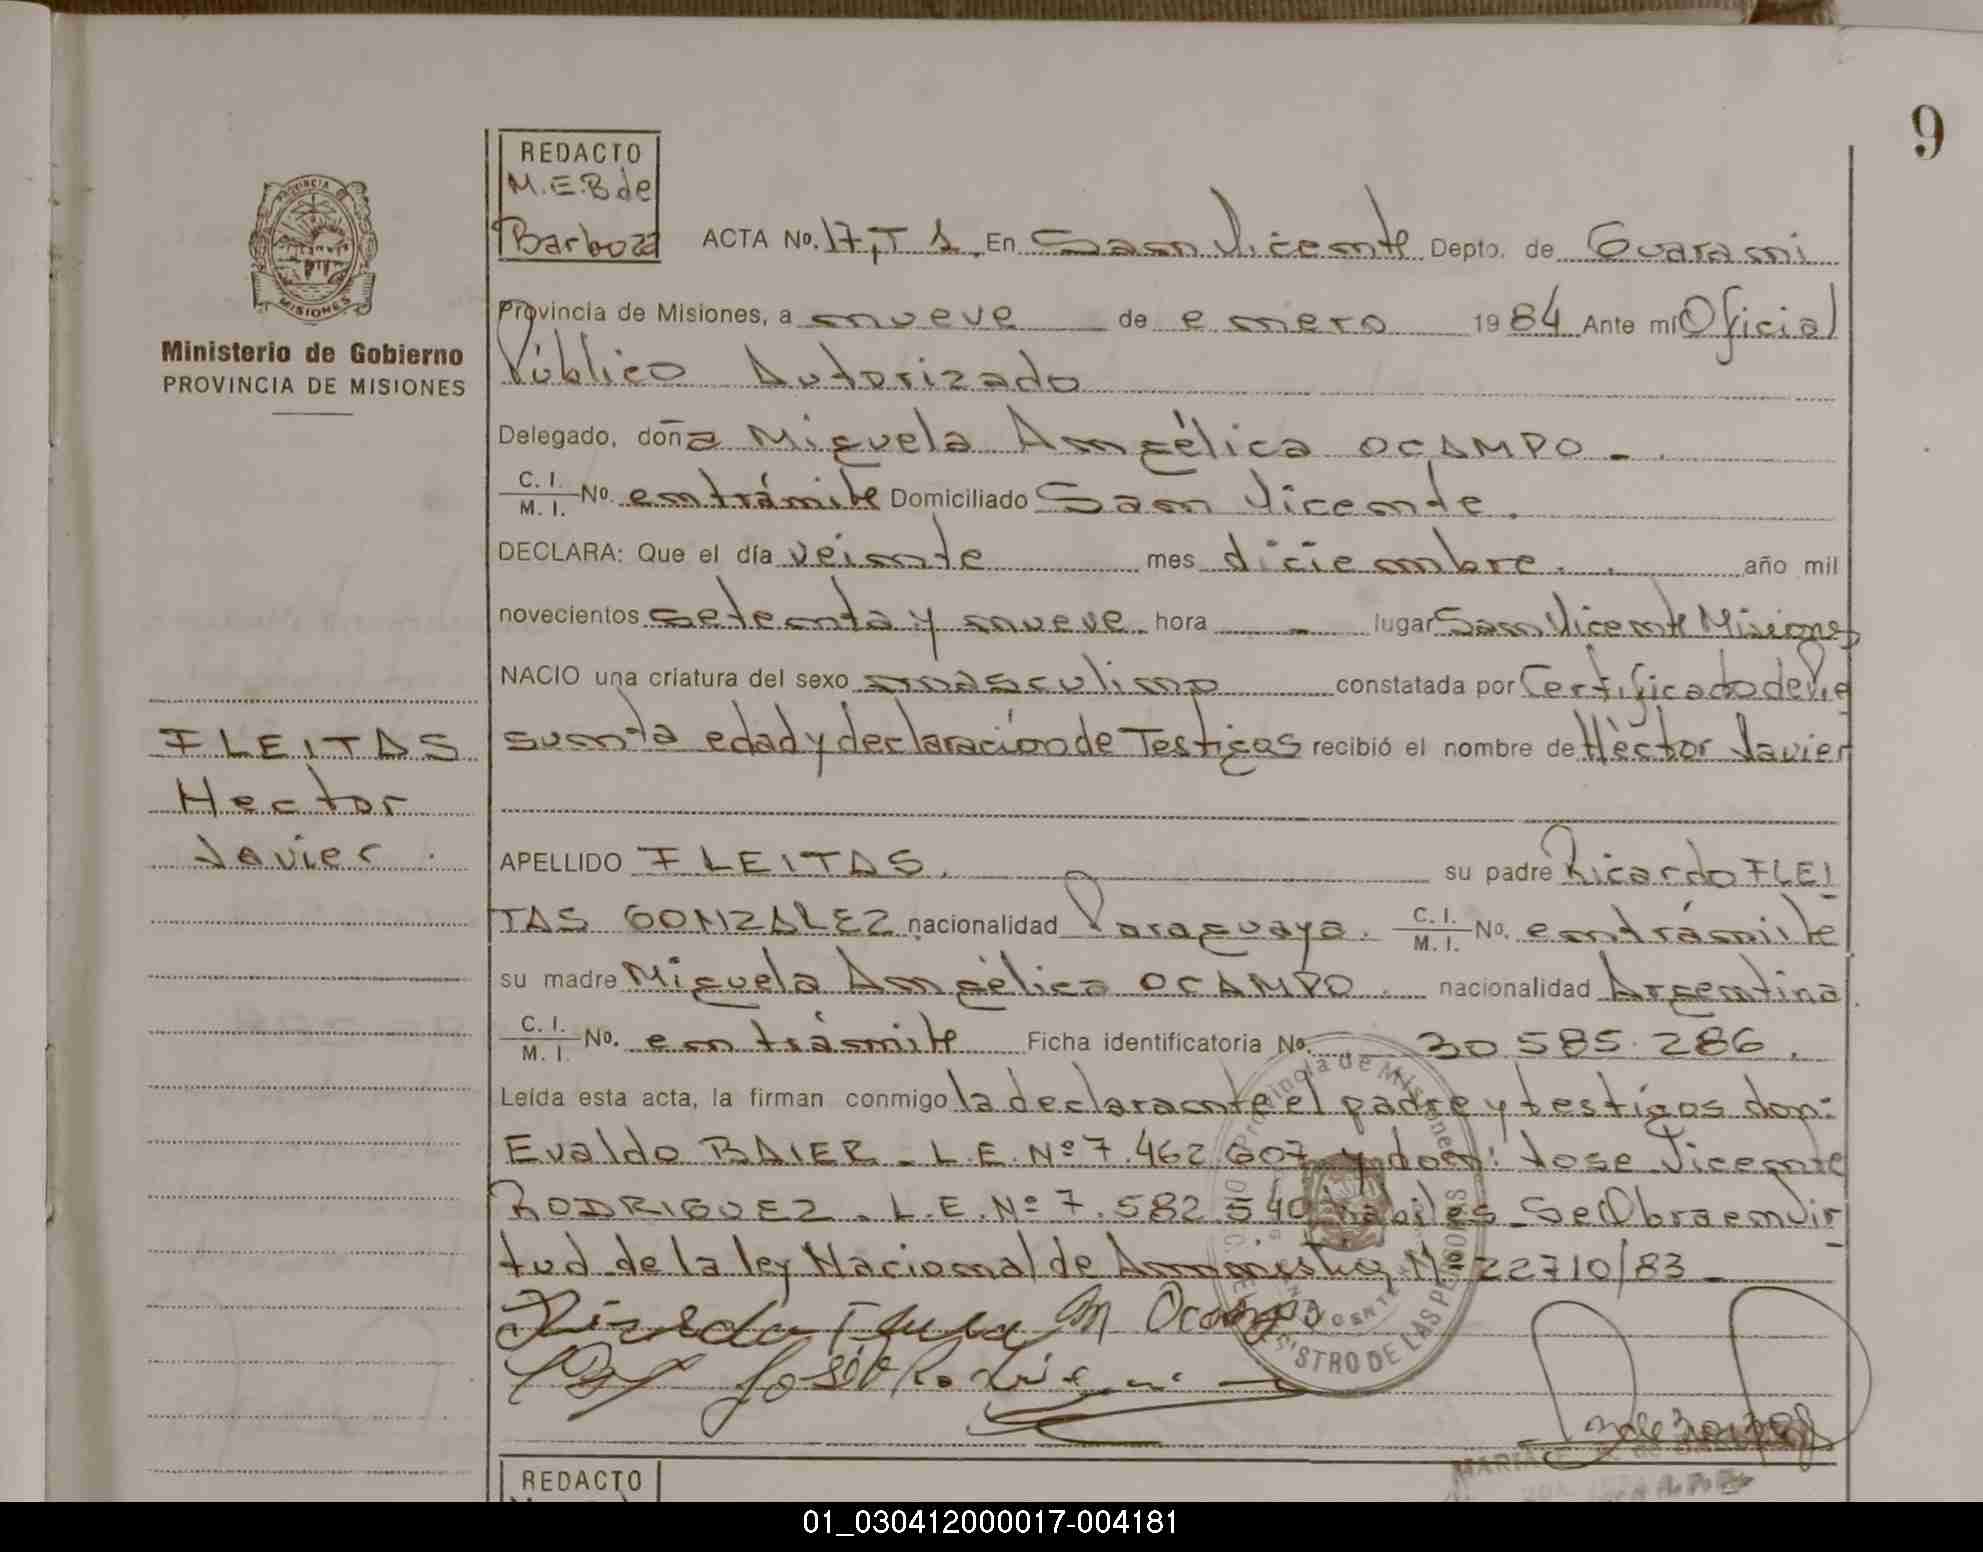 9
REDACTO
M.E.B de
Barboza
ACTA No. 17, T 1. En San Vicente Depto. de Guarani
PROVINCIA DE
MISIONES
Ministerio de Gobierno
PROVINCIA DE MISIONES
Provincia de Misiones, a nueve de enero 1984 Ante mí Oficial
Público Autorizado
Delegado, doña Miguela Angélica OCAMPO -.
C. I.
M. I. No. en trámite Domiciliado San Vicente.
DECLARA: Que el día veinte mes diciembre. . año mil
novecientos setenta y nueve hora - lugar San Vicente Misiones
NACIO una criatura del sexo masculino constatada por Certificado de Pre
sunta edad y declaración de Testigos recibió el nombre de Héctor Javier
FLEITAS
Hector
Javier.
APELLIDO FLEITAS. su padre Ricardo FLEI
TAS GONZALEZ nacionalidad Paraguaya. C. I.
M. I. No. en trámite
su madre Miguela Angélica OCAMPO. nacionalidad Argentina.
C. I.
M. I. No. en trámite Ficha identificatoria No. 30.585.286.
Leída esta acta, la firman conmigo la declarante el padre y testigos don:
Evaldo BAIER. L.E. Nº 7.462.607 y don: Jose Vicente
RODRIGUEZ. L.E. Nº 7.582.540 habiles. Se Obra en vir
tud de la ley Nacional de Amnistia Nº 22710/83 -
M Ocampo
José V Rodriguez
Provincia de Misiones
REGISTRO DE LAS PERSONAS
MARIA
REDACTO
01_030412000017-004181